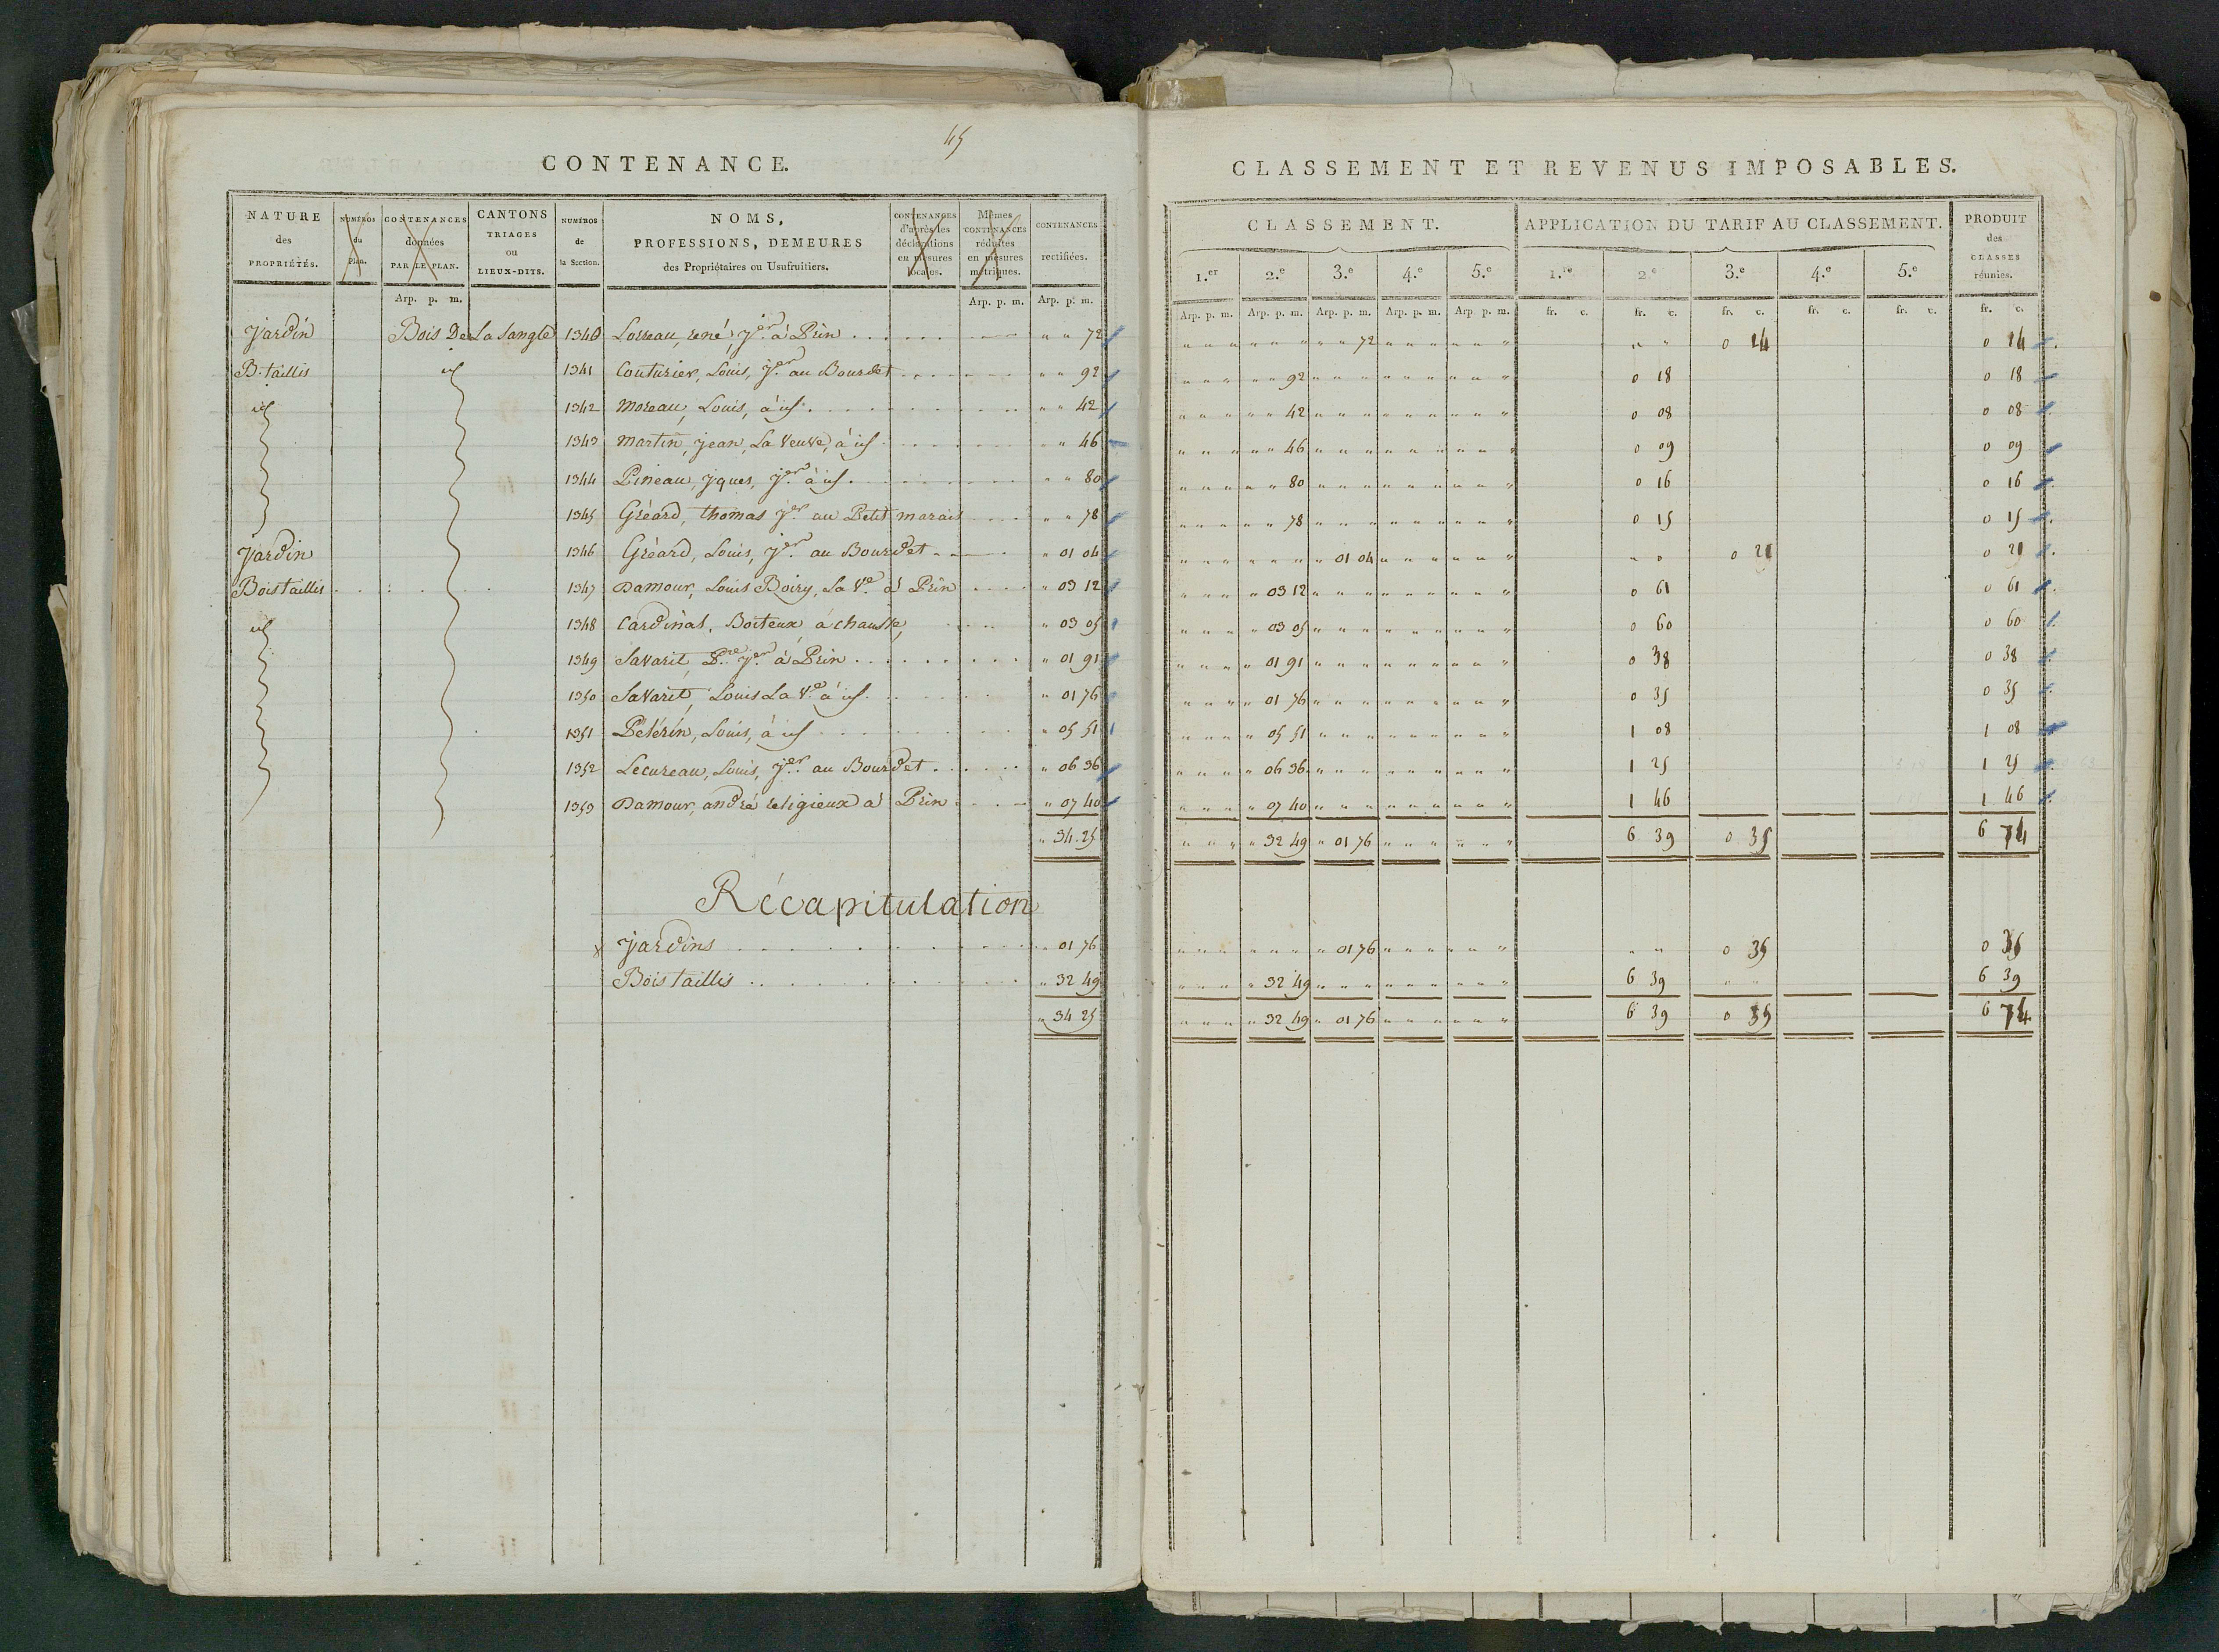 45
CONTENANCE.
NATURE des PROPRIÉTÉS. NUMÉROS du Plan. CONTENANCES données PAR LE PLAN. CANTONS TRIAGES ou LIEUX-DITS. NUMÉROS de la Section. NOMS, PROFESSIONS, DEMEURES des Propriétaires ou Usufruitiers. CONTENANCES d'après les déclarations en mesures locales. Mêmes CONTENANCES réduites en mesures métriques. CONTENANCES rectifiées.
Arp. p. m. Arp. p. m. Arp. p. m.
Jardin Bois De La Sangle 1340 Loreau, rené, Jer. à Prin " " 72
B. taillis id 1341 Couturier, Louis, Jer. au Bourdet " " 92
id 1342 Moreau, Louis, à id " " 42
1343 Martin, Jean, La Veuve, à id " " 46
1344 Pineau, Jques, Jer. à id " " 80
1345 Gréard, thomas Jer. au Petit marais " " 78
Jardin 1346 Gréard, Louis, Jer. au Bourdet " 01 04
Bois Taillis 1347 Damour, Louis Boiry, La Ve. à Prin " 03 12
id 1348 Cardinal, Boiteux, à chausse, " 03 05
1349 Savarit, Pre. Jer. à Prin " 01 91
1350 Savarit, Louis La Ve. à id " 01 76
1351 Pélérin, Louis, à id " 05 51
1352 Lecureau, Louis, Jer. au Bourdet " 06 36
1353 Damour, andré religieux à Prin " 07 40
" 34.25
Récapitulation
Jardins " 01 76
Bois Taillis " 32 49
" 34 25
CLASSEMENT ET REVENUS IMPOSABLES.
CLASSEMENT. APPLICATION DU TARIF AU CLASSEMENT. PRODUIT des CLASSES réunies.
1.er 2.e 3.e 4.e 5.e 1.re 2.e 3.e 4.e 5.e
Arp. p. m. Arp. p. m. Arp. p. m. Arp. p. m. Arp. p. m. fr. c. fr. c. fr. c. fr. c. fr. c. fr. c.
" " " " " " " " 72 " " " " " " " " 0 14 0 14
" " " " " 92 " " " " " " " " " 0 18 0 18
" " " " " 42 " " " " " " " " " 0 08 0 08
" " " " " 46 " " " " " " " " " 0 09 0 09
" " " " " 80 " " " " " " " " " 0 16 0 16
" " " " " 78 " " " " " " " " " 0 15 0 15
" " " " " " " 01 04 " " " " " " " 0 0 21 0 21
" " " " 03 12 " " " " " " " " " 0 61 0 61
" " " " 03 05 " " " " " " " " " 0 60 0 60
" " " " 01 91 " " " " " " " " " 0 38 0 38
" " " " 01 76 " " " " " " " " " 0 35 0 35
" " " " 05 51 " " " " " " " " " 1 08 1 08
" " " " 06 36 " " " " " " " " " 1 25 1 25
" " " " 07 40 " " " " " " " " " 1 46 1 46
" " " " 32 49 " 01 76 " " " " " " 6 39 0 35 6 74
" " " " " " " 01 76 " " " " " " " " 0 35 0 35
" " " " 32 49 " " " " " " " " " 6 39 " " 6 39
" " " " 32 49 " 01 76 " " " " " " 6 39 0 35 6 74